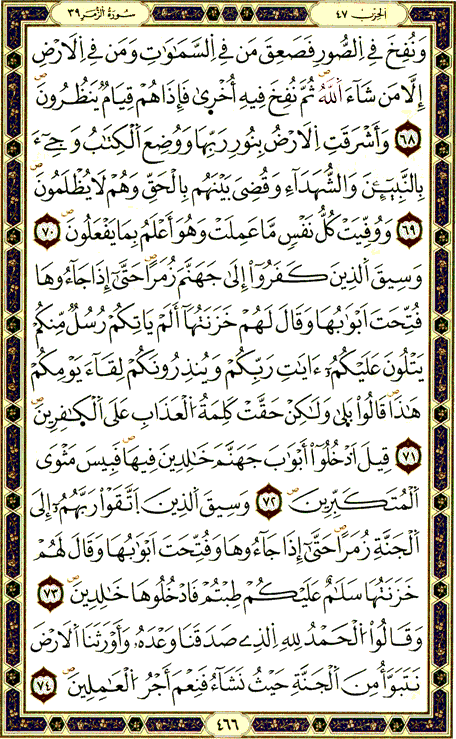 الحزب ٤٧
سورة الزمر ٣٩
وَنُفِخَ فِي اِ۬لصُّورِ فَصَعِقَ مَن فِي اِ۬لسَّمَٰوَٰتِ وَمَن فِي اِ۬لَارْضِ
إِلَّا مَن شَآءَ اَ۬للَّهُ ثُمَّ نُفِخَ فِيهِ أُخْرَىٰ فَإِذَا هُمْ قِيَامٌ يَنظُرُونَ
٦٨ وَأَشْرَقَتِ اِ۬لَارْضُ بِنُورِ رَبِّهَا وَوُضِعَ اَ۬لْكِتَٰبُ وَجِےٓءَ
بِالنَّبِيٓـِٕينَ وَالشُّهَدَآءِ وَقُضِيَ بَيْنَهُم بِالْحَقِّ وَهُمْ لَا يُظْلَمُونَ
٦٩ وَوُفِّيَتْ كُلُّ نَفْسٍ مَّا عَمِلَتْ وَهُوَ أَعْلَمُ بِمَا يَفْعَلُونَ ٧٠
وَسِيقَ اَ۬لذِينَ كَفَرُوٓاْ إِلَىٰ جَهَنَّمَ زُمَراً حَتَّىٰٓ إِذَا جَآءُوهَا
فُتِّحَتَ اَبْوَٰبُهَا وَقَالَ لَهُمْ خَزَنَتُهَآ أَلَمْ يَاتِكُمْ رُسُلٌ مِّنكُمْ
يَتْلُونَ عَلَيْكُمُۥٓ ءَايَٰتِ رَبِّكُمْ وَيُنذِرُونَكُمْ لِقَآءَ يَوْمِكُمْ
هَٰذَا قَالُواْ بَلَىٰ وَلَٰكِنْ حَقَّتْ كَلِمَةُ اُ۬لْعَذَابِ عَلَى اَ۬لْكٰ۪فِرِينَ
٧١ قِيلَ اَ۟دْخُلُوٓاْ أَبْوَٰبَ جَهَنَّمَ خَٰلِدِينَ فِيهَا فَبِيسَ مَثْوَى
اَ۬لْمُتَكَبِّرِينَ ٧٢ وَسِيقَ اَ۬لذِينَ اَ۪تَّقَوْاْ رَبَّهُمُۥٓ إِلَى
اَ۬لْجَنَّةِ زُمَراً حَتَّىٰٓ إِذَا جَآءُوهَا وَفُتِّحَتَ اَبْوَٰبُهَا وَقَالَ لَهُمْ
خَزَنَتُهَا سَلَٰمٌ عَلَيْكُمْ طِبْتُمْ فَادْخُلُوهَا خَٰلِدِينَ ٧٣
وَقَالُواْ اُ۬لْحَمْدُ لِلهِ اِ۬لذِے صَدَقَنَا وَعْدَهُۥ وَأَوْرَثَنَا اَ۬لَارْضَ
نَتَبَوَّأُ مِنَ اَ۬لْجَنَّةِ حَيْثُ نَشَآءُ فَنِعْمَ أَجْرُ اُ۬لْعَٰمِلِينَ ٧٤
٤٦٦